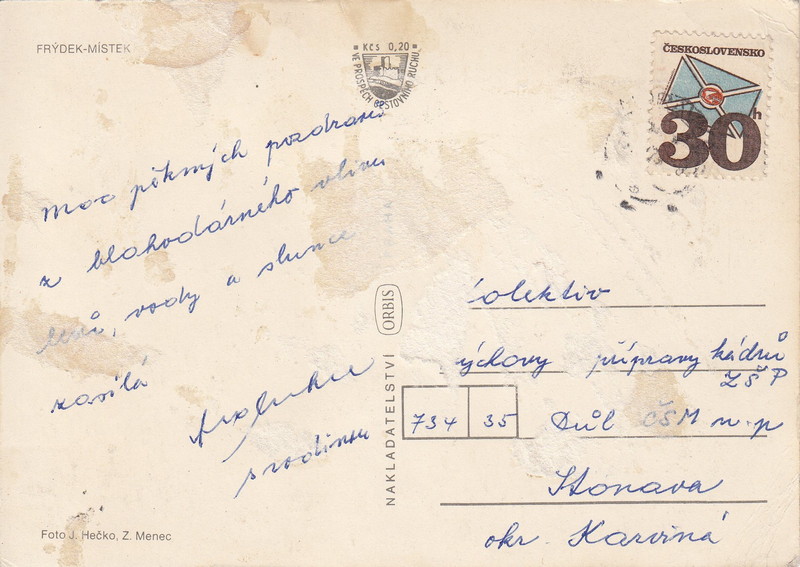 FRÝDEK-MÍSTEK
Kčs 0,20
VE PROSPĚCH CESTOVNÍHO RUCHU
ČESKOSLOVENSKO
30h
moc pěkných pozdravů
z blahodárného vlivu
lesů, vody a slunce
zasílá
s rodinou
NAKLADATELSTVÍ ORBIS
PRAHA
olektiv
ýchovy přípravy kádrů
ZŠP
734 35 Důl ČSM n.p
Stonava
okr. Karviná
Foto J. Hečko, Z. Menec